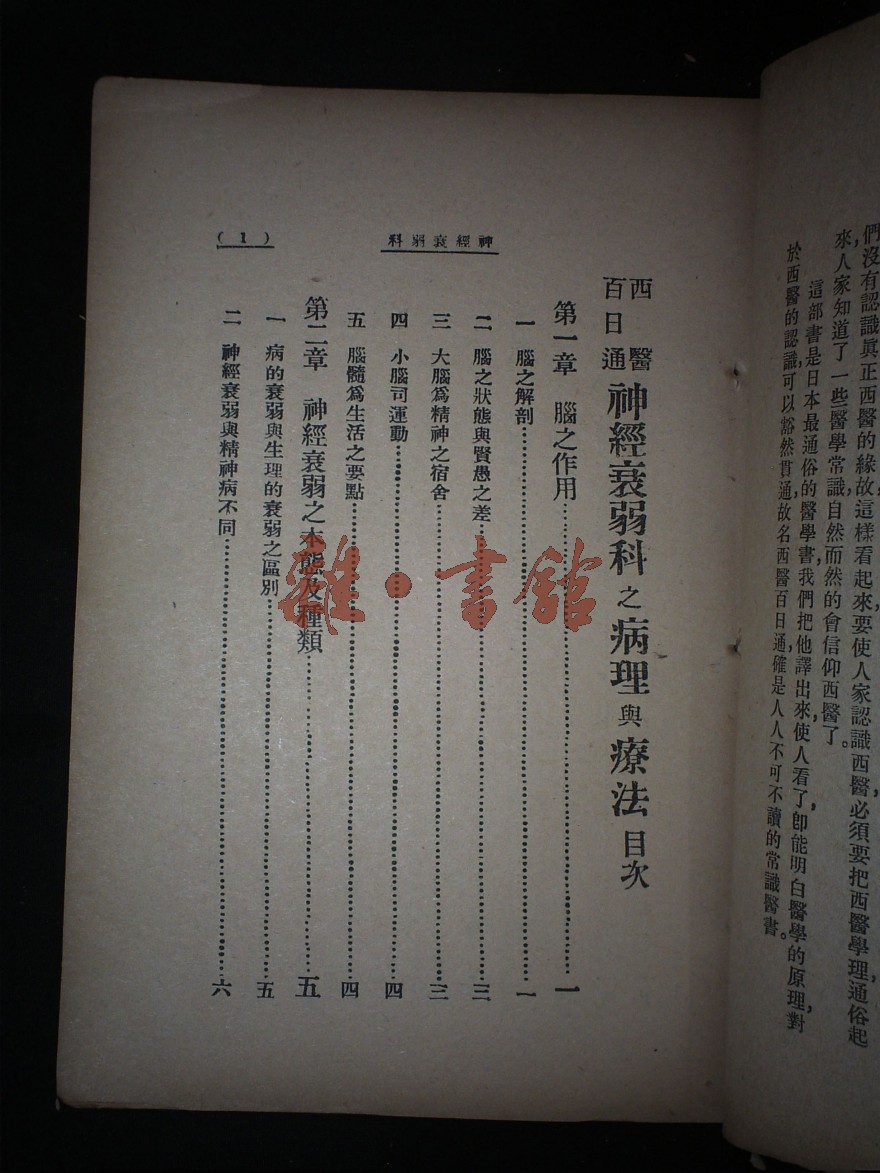 們沒有認識眞正西醫的緣故，這樣看起來，要使人家認識西醫，必須要把西醫學理通俗起
來，人家知道了一些醫學常識，自然而然的會信仰西醫了。
這部書是日本最通俗的醫學書，我們把他譯出來，使人看了，卽能明白醫學的原理，對
於西醫的認識，可以豁然貫通，故名西醫百日通，確是人人不可不讀的常識醫書。
神經衰弱科
(1)
西醫百日通 神經衰弱科之病理與療法 目次
第一章 腦之作用……一
一 腦之解剖……一
二 腦之狀態與賢愚之差……三
三 大腦爲精神之宿舍……三
四 小腦司運動……四
五 腦髓爲生活之要點……四
第二章 神經衰弱之本態及種類……五
一 病的衰弱與生理的衰弱之區別……五
二 神經衰弱與精神病不同……六
雜·書館